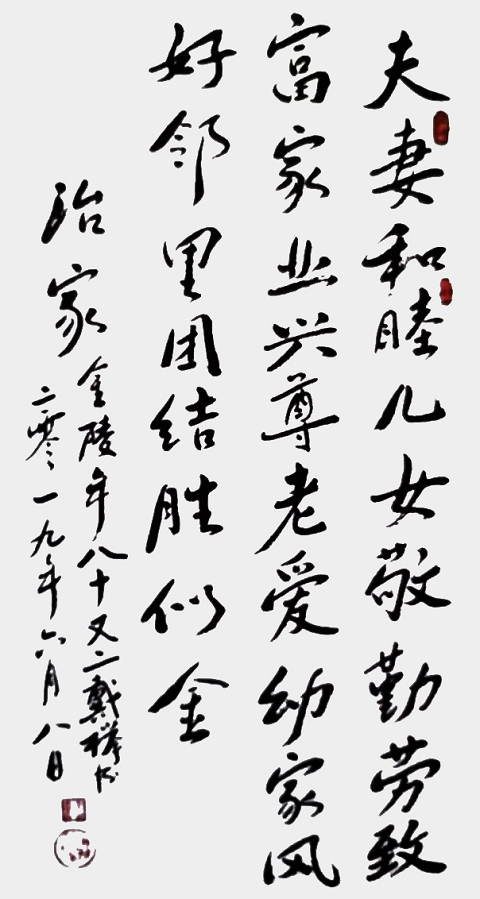 夫妻和睦儿女敬勤劳致
富家业兴尊老爱幼家风
好邻里团结胜似金
治家
金陵年八十又二戴
二零一九年六月八日